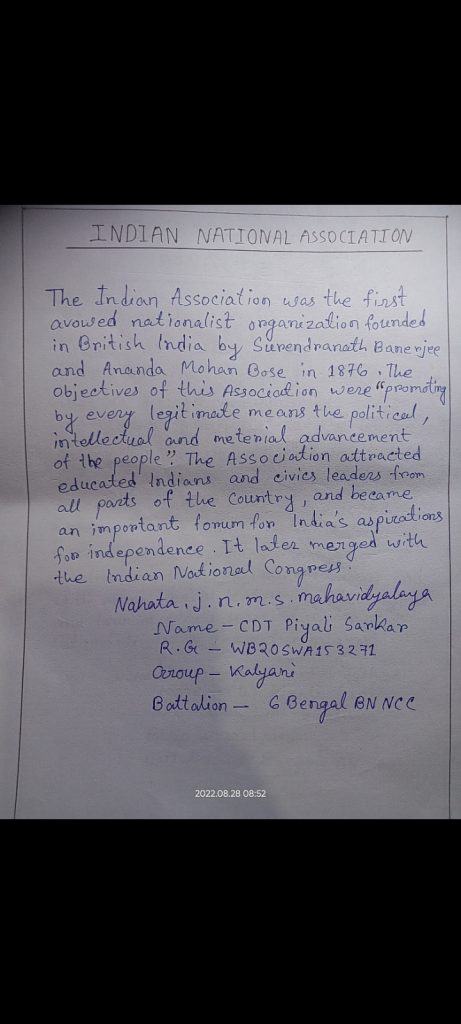 INDIAN NATIONAL ASSOCIATION
The Indian Association was the first
avowed nationalist organization founded
in British India by Surendranath Banerjee
and Ananda Mohan Bose in 1876. The
objectives of this Association were "promoting
by every legitimate means the political,
intellectual and meterial advancement
of the people". The Association attracted
educated Indians and civics leaders from
all parts of the Country, and became
an important forum for India's aspirations
for independence. It later merged with
the Indian National Congress.
Nahata. j. n. m. s. mahavidyalaya
Name - CDT Piyali Sarkar
R.G - WB20SWA153271
Group - Kalyani
Battalion - 6 Bengal BN NCC
2022.08.28 08:52